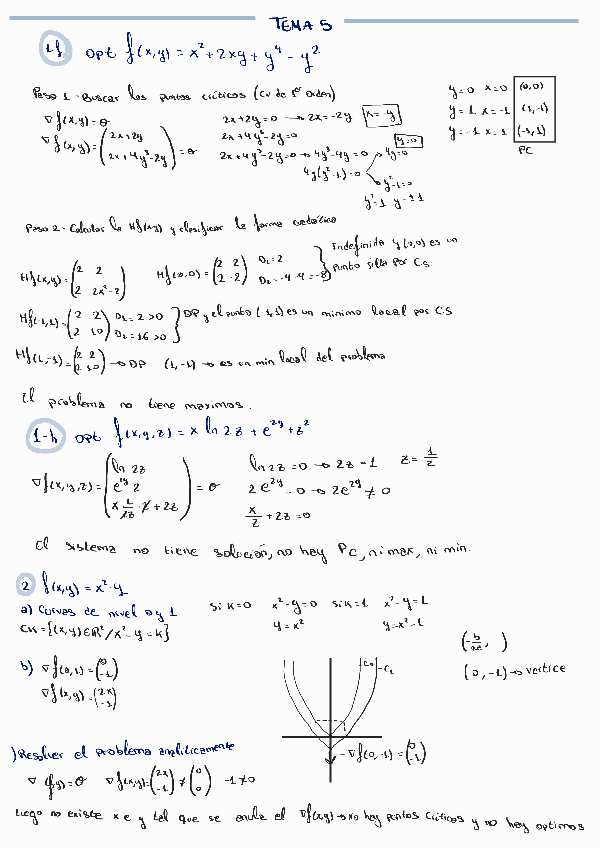 TEMA 5
1-f opt f(x,y) = x² + 2xy + y⁴ - y²
Paso 1 - Buscar los puntos críticos (CN de 1er orden)
∇f(x,y) = θ
∇f(x,y) = (2x+2y
2x+4y³-2y) = θ
2x+2y=0 → 2x=-2y x=-y
2x+4y³-2y=0 y=0
2x+4y³-2y=0 → 4y³-4y=0 → 4y=0
4y(y²-1)=0
y²-1=0
y²=1 y=±1
y=0 x=0 (0,0)
y=1 x=-1 (1,-1)
y=-1 x=1 (-1,1)
PC
Paso 2 - Calcular la Hf(x,y) y clasificar la forma cuadrática
Hf(x,y) = (2 2
2 2x²-2)
Hf(0,0) = (2 2
2 -2) D₁=2
D₂=-4-4=-8
Indefinida y (0,0) es un
punto silla por C.S.
Hf(-1,1) = (2 2
2 10) D₁=2>0
D₂=16>0 } DP y el punto (-1,1) es un minimo local por C.S
Hf(1,-1) = (2 2
2 10) → DP (1,-1) → es un min local del problema
El problema no tiene maximos.
1-h opt f(x,y,z) = x ln 2z + e²ʸ + z²
∇f(x,y,z) = (ln 2z
e²ʸ 2
x 1/2z · 2 + 2z) = θ
ln 2z = 0 → 2z = 1 z = 1/2
2e²ʸ = 0 → 2e²ʸ ≠ 0
x/z + 2z = 0
El sistema no tiene solución, no hay PC, ni max, ni min.
2 f(x,y) = x² - y
a) Curvas de nivel 0 y 1
CK = {(x,y) ∈ ℝ² / x² - y = k}
si k=0 x²-y=0 si k=1 x²-y=1
y=x² y=x²-1
(-b/2a, )
(0,-1) → vertice
b) ∇f(0,1) = (0
-1)
∇f(x,y) = (2x
-1)
C₀ C₁
∇f(0,-1) = (0
-1)
) Resolver el problema analiticamente
∇f(x,y) = θ ∇f(x,y) = (2x
-1) ≠ (0
0) -1≠0
Luego no existe x e y tal que se anule el ∇f(x,y) → no hay puntos críticos y no hay optimos